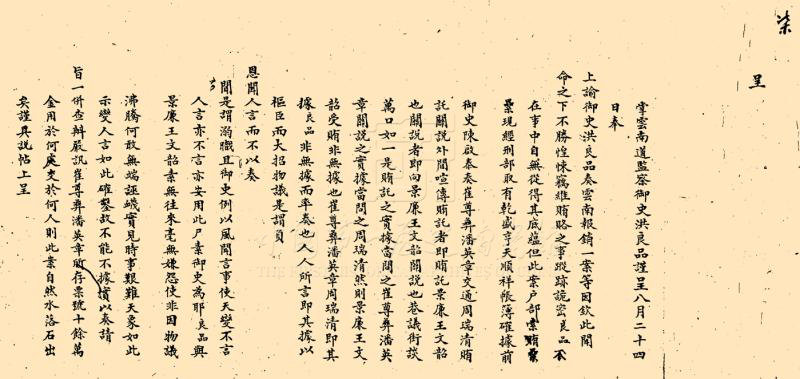 柒
呈
掌雲南道監察御史洪良品謹呈八月二十四
日奉
上諭御史洪良品奏雲南報銷一案等因欽此聞
命之下不勝惶悚竊維賄賂之事蹤跡詭密良品不
在事中自無從得其底蘊但此案戶部索賄
眾現經刑部取有乾盛亨天順祥帳簿確據前
御史陳啟泰奏崔尊彝潘英章交通周瑞清賄
託關說外間喧傳賄託者即賄託景廉王文韶
也關說者即向景廉王文韶關說也巷議街談
萬口如一是賄託之實據當問之崔尊彝潘英
章關說之實據當問之周瑞清然則景廉王文
韶受賄非無據也崔尊彝潘英章周瑞清即其
據良品非無據而率奏也人人所言即其據以
樞臣而大招物議是謂負
恩聞人言而不以奏
聞是謂溺職且御史例以風聞言事使天變不言
人言亦不言亦安用此尸素御史為耶良品與
景廉王文韶素無往來毫無嫌怨使非因物議
沸騰何敢無端誣衊實見時事艱難天象如此
示變人言如此確鑿故不能不據實以奏請
旨一併查辦嚴訊崔尊彝潘英章匯存票號十餘萬
金用於何處交於何人則此案自然水落石出
矣謹具說帖上呈